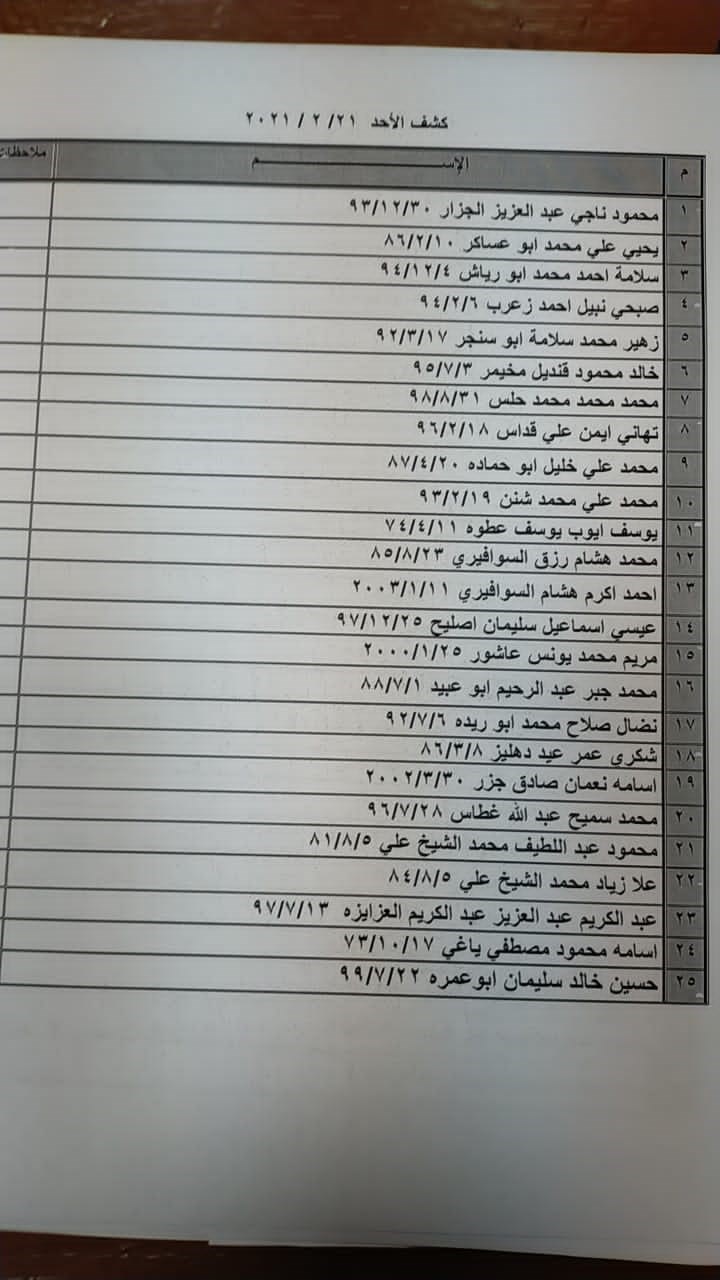 كشف الأحد ٢١/ ٢ / ٢٠٢١
م الإســـــم ملاحظات
١ محمود ناجي عبد العزيز الجزار ٩٣/١٢/٣٠
٢ يحيي علي محمد ابو عساكر ٨٦/٢/١٠
٣ سلامة احمد محمد ابو رياش ٩٤/١٢/٤
٤ صبحي نبيل احمد زعرب ٩٤/٢/٦
٥ زهير محمد سلامة ابو سنجر ٩٢/٣/١٧
٦ خالد محمود قنديل مخيمر ٩٥/٧/٣
٧ محمد محمد محمد حلس ٩٨/٨/٣١
٨ تهاني ايمن علي قداس ٩٦/٢/١٨
٩ محمد علي خليل ابو حماده ٨٧/٤/٢٠
١٠ محمد علي محمد شنن ٩٣/٢/١٩
١١ يوسف ايوب يوسف عطوه ٧٤/٤/١١
١٢ محمد هشام رزق السوافيري ٨٥/٨/٢٣
١٣ احمد اكرم هشام السوافيري ٢٠٠٣/١/١١
١٤ عيسي اسماعيل سليمان اصليح ٩٧/١٢/٢٥
١٥ مريم محمد يونس عاشور ٢٠٠٠/١/٢٥
١٦ محمد جبر عبد الرحيم ابو عبيد ٨٨/٧/١
١٧ نضال صلاح محمد ابو ريده ٩٢/٧/٦
١٨ شكري عمر عيد دهليز ٨٦/٣/٨
١٩ اسامه نعمان صادق جزر ٢٠٠٢/٣/٣٠
٢٠ محمد سميح عبد الله غطاس ٩٦/٧/٢٨
٢١ محمود عبد اللطيف محمد الشيخ علي ٨١/٨/٥
٢٢ علا زياد محمد الشيخ علي ٨٤/٨/٥
٢٣ عبد الكريم عبد العزيز عبد الكريم العزايزه ٩٧/٧/١٣
٢٤ اسامه محمود مصطفي ياغي ٧٣/١٠/١٧
٢٥ حسين خالد سليمان ابوعمره ٩٩/٧/٢٢